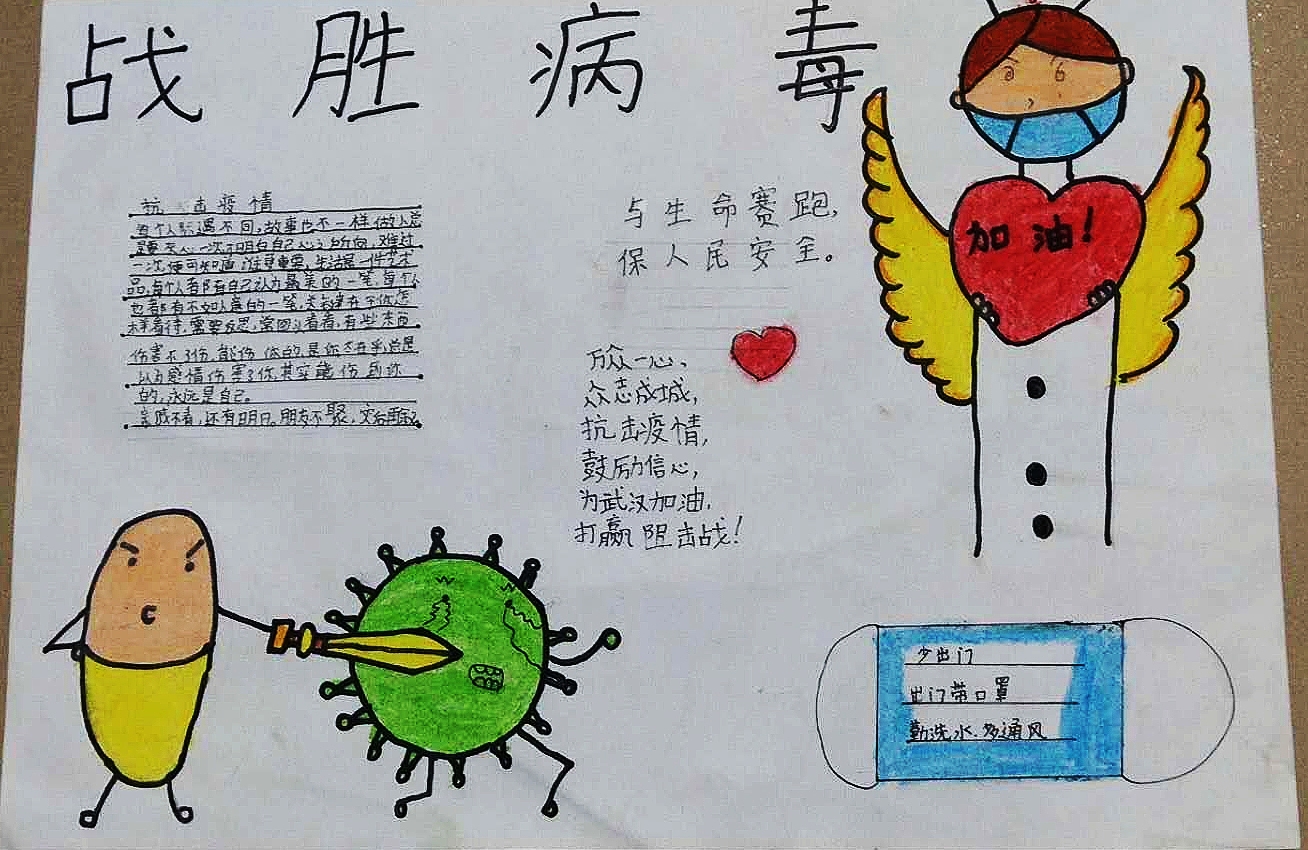 战胜病毒
加油!
抗击疫情
每个人际遇不同,故事也不一样做人总
是要失心一次才明白自己心之所向,难过
一次便可知道谁更重要,生活是一件艺术
品,每个人都有自己认为最美的一笔,每个人
也都有不如人意的一笔,关键在于你怎
样看待,需要反思,常回头看看,有些东西
伤害不了你,能伤你的,是你太在乎,总是
以为感情伤害了你,其实能伤到你
的,永远是自己。
亲戚不看,还有明日。朋友不聚,灾后再
与生命赛跑,
保人民安全。
万众一心、
众志成城,
抗击疫情,
鼓励信心,
为武汉加油,
打赢阻击战!
少出门
出门带口罩
勤洗水.多通风